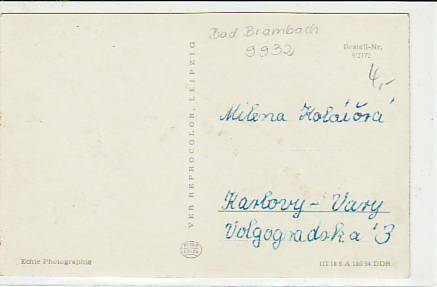 Bad Brambach
9932
Bestell-Nr.
9/2172
4,-
VEB REPROCOLOR, LEIPZIG
Milena Koláčná
Karlovy-Vary
Volgogradska 13
Echte Photographie
III 18 8 A 186/54 DDR